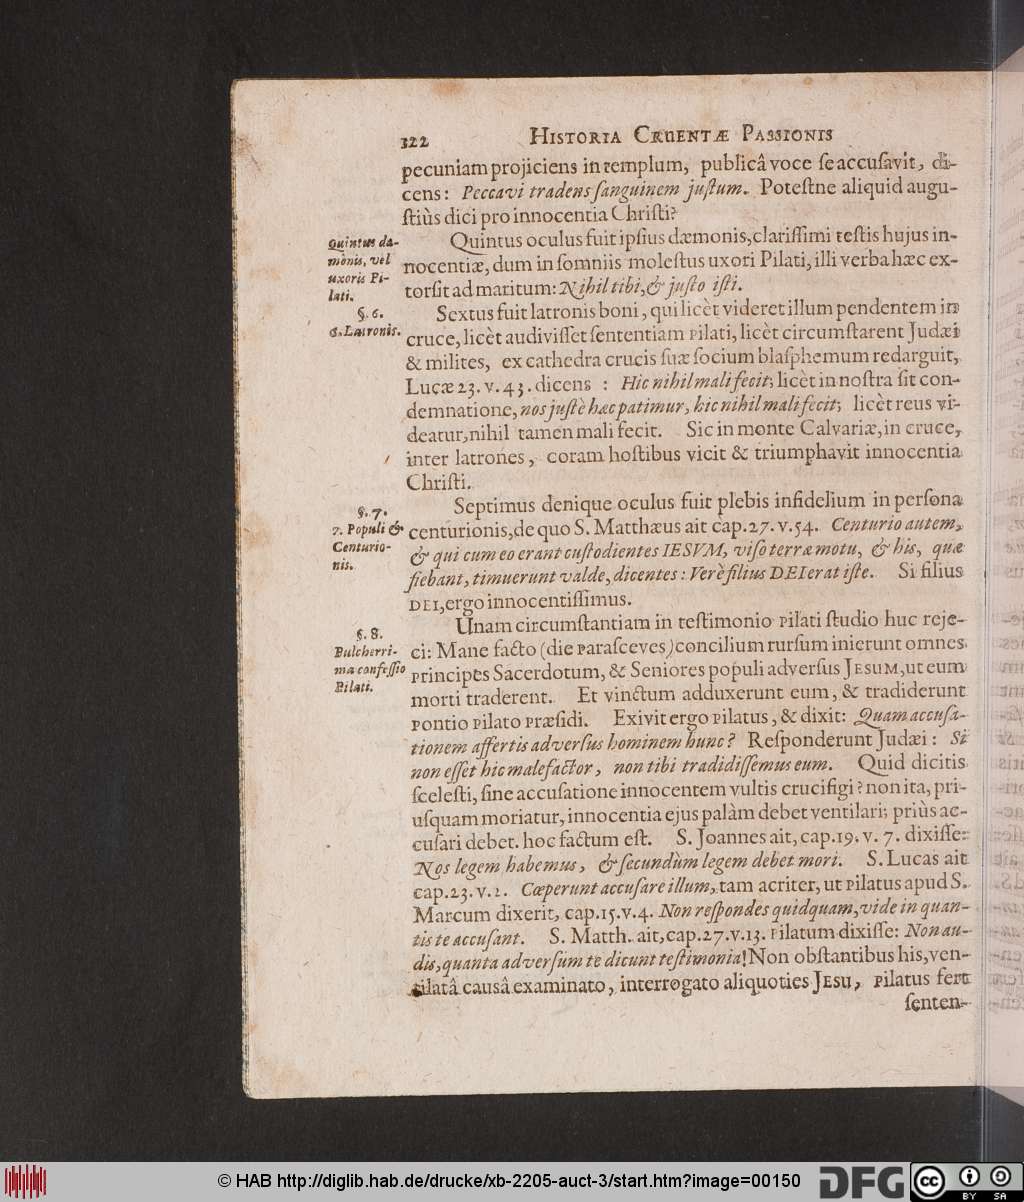 322 HISTORIA CRUENTÆ PASSIONIS
pecuniam projiciens in templum, publicâ voce ſe accuſavit, di-
cens: Peccavi tradens ſanguinem juſtum. Poteſtne aliquid augu-
ſtiùs dici pro innocentia Chriſti?
Quintus dæ-
monis, vel
uxoris Pi-
lati.
Quintus oculus fuit ipſius dæmonis, clariſſimi teſtis hujus in-
nocentiæ, dum in ſomniis moleſtus uxori Pilati, illi verba hæc ex-
torſit ad maritum: Nihil tibi, & juſto iſti.
§. 6.
6. Latronis.
Sextus fuit latronis boni, qui licèt videret illum pendentem in
cruce, licèt audiviſſet ſententiam Pilati, licèt circumſtarent Judæi
& milites, ex cathedra crucis ſuæ ſocium blaſphemum redarguit,
Lucæ 23. v. 43. dicens : Hic nihil mali fecit; licèt in noſtra ſit con-
demnatione, nos juſtè hæc patimur, hic nihil mali fecit; licèt reus vi-
deatur, nihil tamen mali fecit. Sic in monte Calvariæ, in cruce,
inter latrones, coram hoſtibus vicit & triumphavit innocentia
Chriſti.
§. 7.
7. Populi &
Centurio-
nis.
Septimus denique oculus fuit plebis infidelium in perſona
centurionis, de quo S. Matthæus ait cap. 27. v. 54. Centurio autem,
& qui cum eo erant cuſtodientes IESVM, viſo terræ motu, & his, quæ
fiebant, timuerunt valde, dicentes: Verè filius DEI erat iſte. Si filius
DEI, ergo innocentiſſimus.
§. 8.
Pulcherri-
ma confeſſio
Pilati.
Unam circumſtantiam in teſtimonio Pilati ſtudio huc reje-
ci: Mane facto (die Paraſceves) concilium rurſum inierunt omnes
principes Sacerdotum, & Seniores populi adverſus JESUM, ut eum
morti traderent. Et vinctum adduxerunt eum, & tradiderunt
Pontio Pilato Præſidi. Exivit ergo Pilatus, & dixit: Quam accuſa-
tionem affertis adverſus hominem hunc? Reſponderunt Judæi: Si
non eſſet hic malefactor, non tibi tradidiſſemus eum. Quid dicitis
ſceleſti, ſine accuſatione innocentem vultis crucifigi? non ita, pri-
uſquam moriatur, innocentia ejus palàm debet ventilari; priùs ac-
cuſari debet. hoc factum eſt. S. Joannes ait, cap. 19. v. 7. dixiſſe:
Nos legem habemus, & ſecundùm legem debet mori. S. Lucas ait
cap. 23. v. 2. Cœperunt accuſare illum, tam acriter, ut Pilatus apud S.
Marcum dixerit, cap. 15. v. 4. Non reſpondes quidquam, vide in quan-
tis te accuſant. S. Matth. ait, cap. 27. v. 13. Pilatum dixiſſe: Non au-
dis, quanta adverſum te dicunt teſtimonia! Non obſtantibus his, ven-
tilatâ causâ examinato, interrogato aliquoties JESU, Pilatus fert
ſenten-
© HAB http://diglib.hab.de/drucke/xb-2205-auct-3/start.htm?image=00150
DFG
cc BY SA